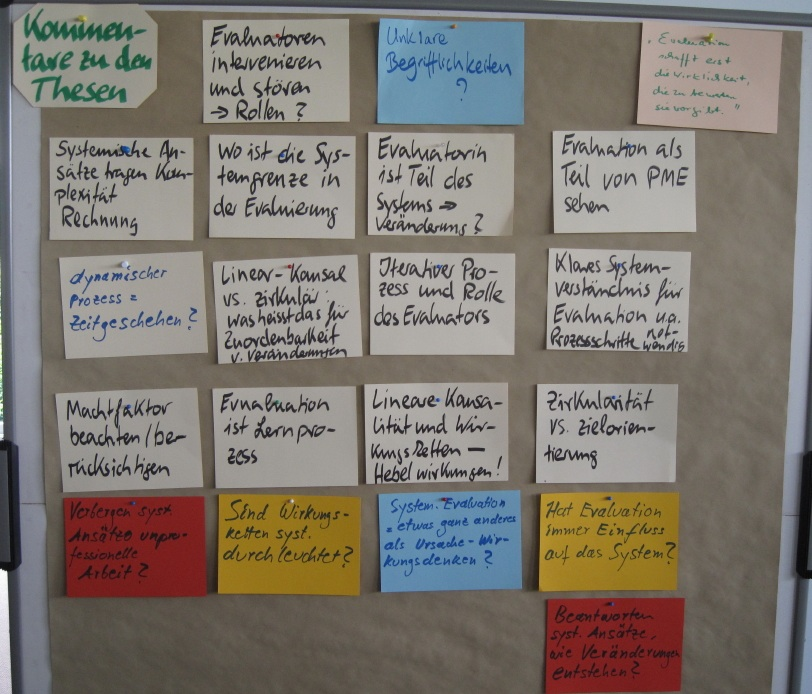 Kommen-
tare zu den
Thesen
Evaluatoren
intervenieren
und stören
→ Rollen?
Unklare
Begrifflichkeiten
?
"Evaluation
schafft erst
die Wirklichkeit,
die zu bewerten
sie vorgibt."
Systemische An-
sätze tragen Kom-
plexität
Rechnung
Wo ist die Sys-
temgrenze in
der Evaluierung
Evaluatorin
ist Teil des
Systems →
Veränderung?
Evaluation als
Teil von PME
sehen
dynamischer
Prozess =
Zeitgeschehen?
Linear-Kausal
vs. zirkulär
was heisst das für
Zuordenbarkeit
v. Veränderungen
Iterativer Pro-
zess und Rolle
des Evaluators
Klares System-
verständnis für
Evaluation u.a.
Prozessschritte not-
wendig
Machtfaktor
beachten/be-
rücksichtigen
Evnaluation
ist Lernpro-
zess
Lineare Kausa-
lität und Wir-
kungsketten –
Hebelwirkungen!
Zirkularität
vs. Zielorien-
tierung
Verbergen syst.
Ansätze unpro-
fessionelle
Arbeit?
Sind Wirkungs-
ketten syst.
durchleuchtet?
System. Evaluation
= etwas ganz anderes
als Ursache-Wir-
kungsdenken?
Hat Evaluation
immer Einfluss
auf das System?
Beantworten
syst. Ansätze,
wie Veränderungen
entstehen?